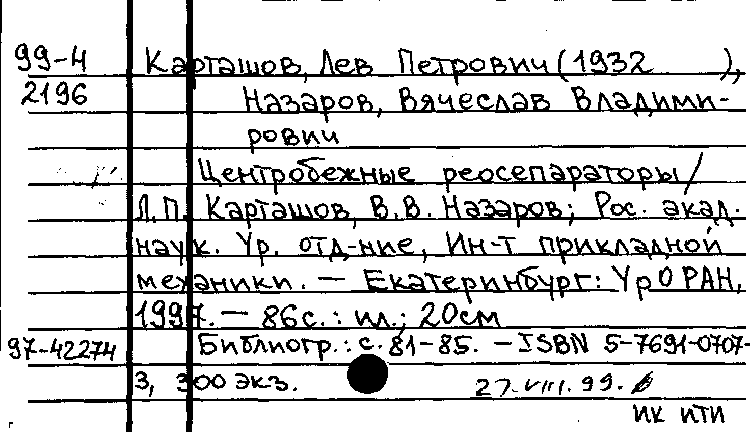 99-4 Карташов, Лев Петрович (1932 ),
2196 Назаров, Вячеслав Владими-
рович
Центробежные реосепараторы /
Л.П. Карташов, В.В. Назаров; Рос. акад.
наук. Ур. отд-ние, Ин-т прикладной
механики. — Екатеринбург: УрО РАН,
1997. — 86с.: ил.; 20см
97-42274 Библиогр.: с. 81-85. — ISBN 5-7691-0707-
3, 300 экз. 27.VIII.99.
ИК ИТИ